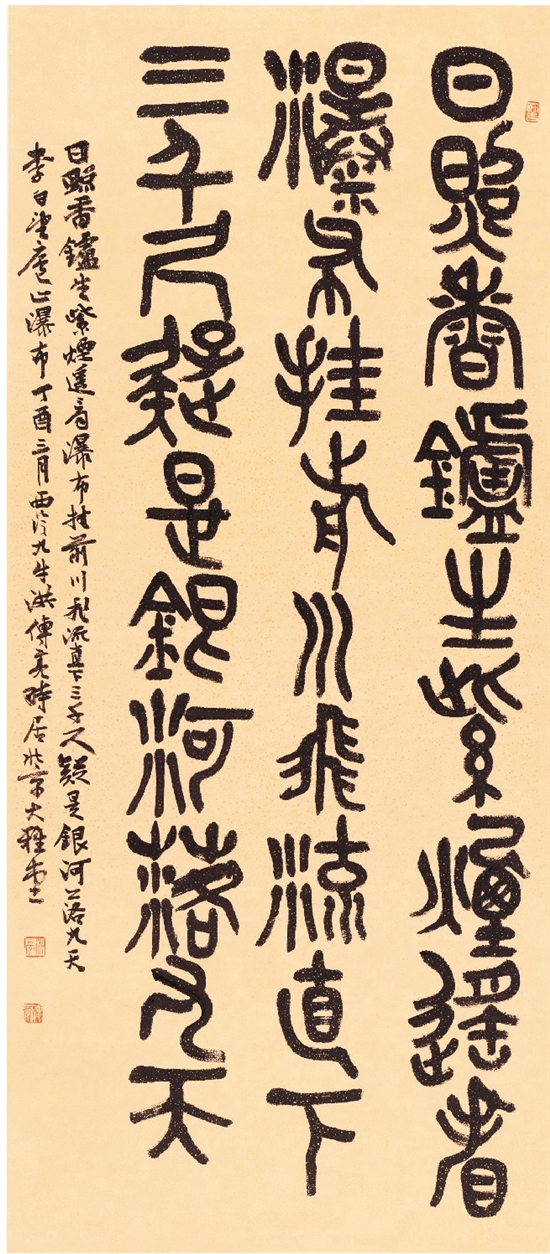 日照香鑪生紫煙遙看
瀑布挂前川飛流直下
三千尺疑是銀河落九天
日照香鑪生紫煙遙看瀑布挂前川飛流直下三千尺疑是銀河落九天
李白望廬山瀑布丁酉三月西泠九牛洪傳亮時居北京大雅